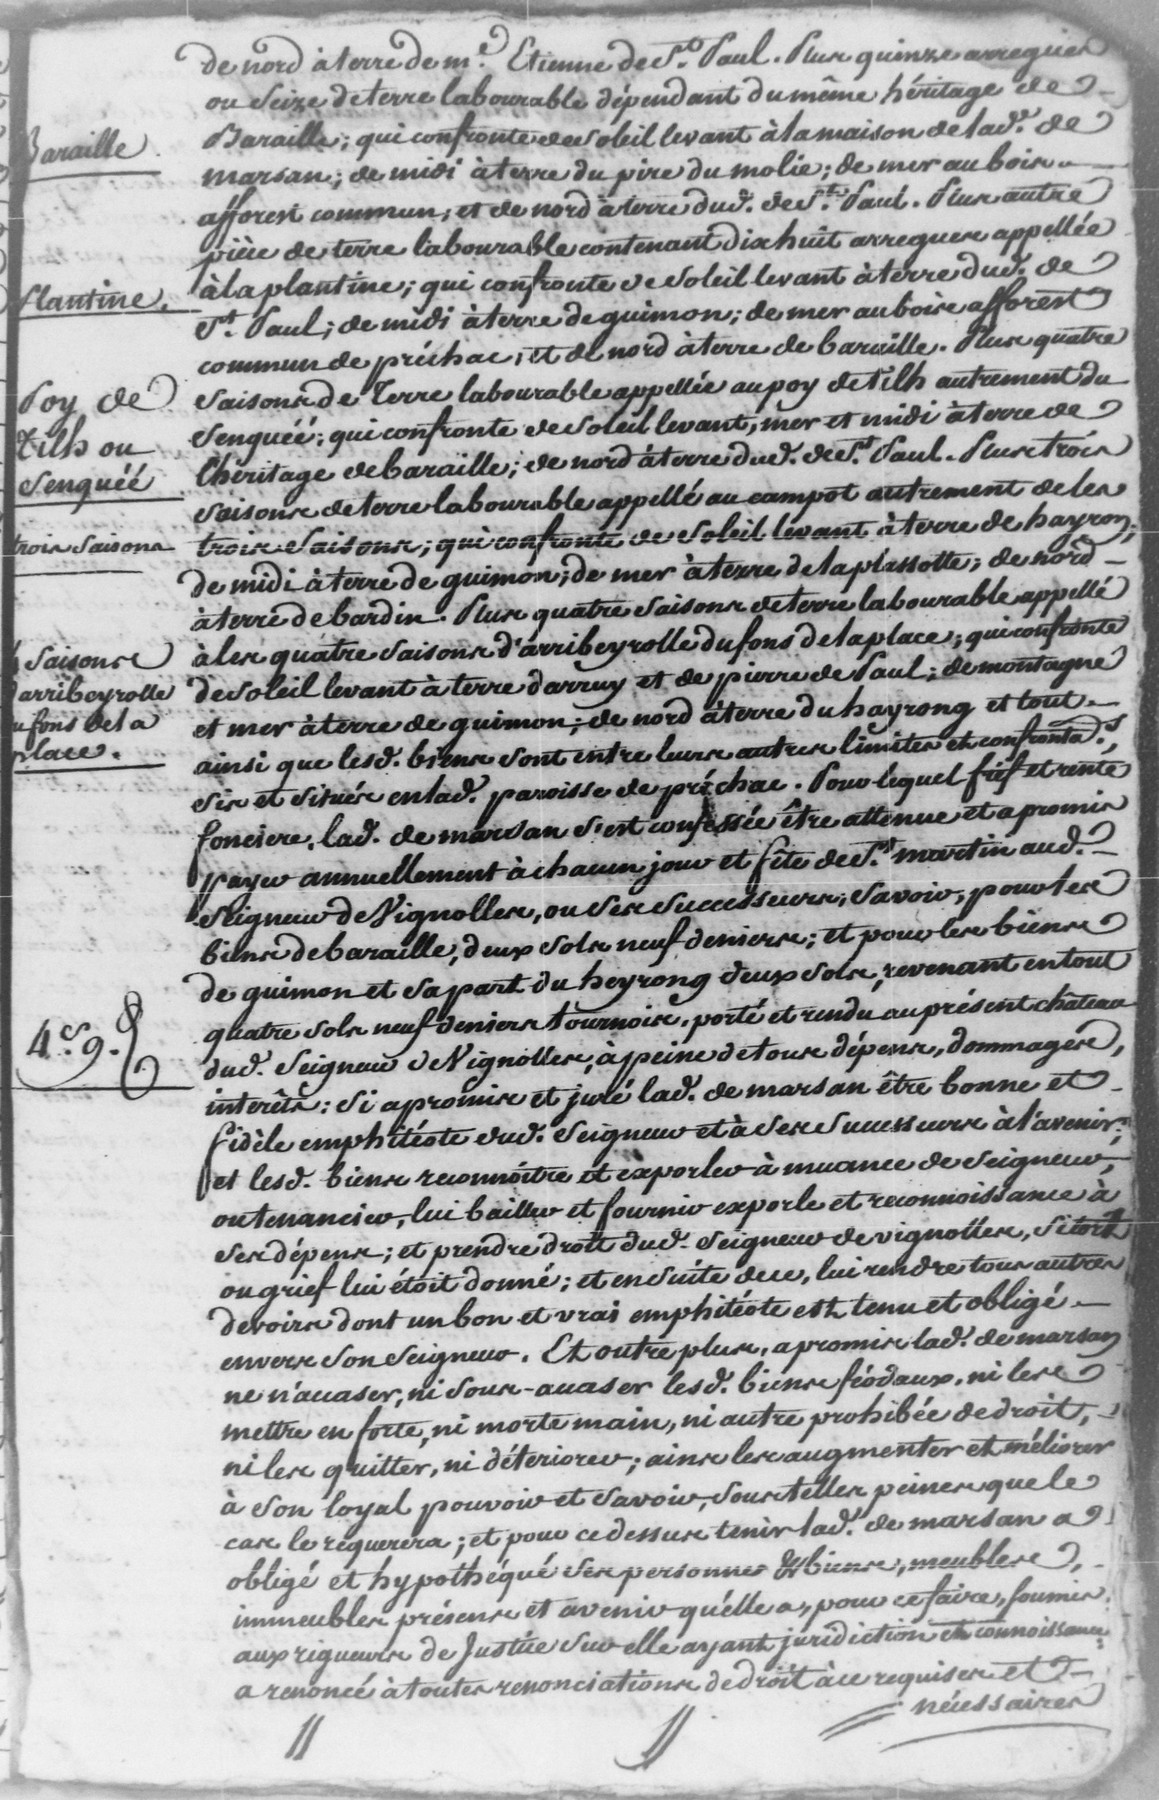 de nord à terre de m.e Etienne de St. Paul. Plus quinze arregues
ou seize de terre labourable dépendant du même héritage de
Baraille; qui confronte de soleil levant à la maison de lad. de
marsan; de midi à terre du pire du molie; de mer au bois
afforest commun; et de nord à terre dud. de St. Paul. Plus autre
pièce de terre labourable contenant dix huit arregues appellée
à la plantine; qui confronte de soleil levant à terre dud. de
St. Paul; de midi à terre de guimon; de mer au bois afforest
commun de préchac; et de nord à terre de baraille. Plus quatre
saisons de Terre labourable appellée au poy de tilh autrement du
senguéé; qui confronte de soleil levant, mer et midi à terre de
l'héritage de baraille; de nord à terre dud. de St. Paul. Plus trois
saisons de terre labourable appellé au campot autrement de les
trois saisons; qui confronte de soleil levant à terre de hayron;
de midi à terre de guimon; de mer à terre de la plassotte; de nord
à terre de bardin. Plus quatre saisons de terre labourable appellé
à les quatre saisons d'arribeyrolle du fons de la place; qui confronte
de soleil levant à terre d'arruy et de pierre de Paul; de montagne
et mer à terre de guimon; de nord à terre du hayrong et tout
ainsi que lesd. biens sont entre leurs autres limites et confrontad.s,
sis et situés en lad. paroisse de préchac. Pour lequel fief et rente
fonciere, lad. de marsan s'est confessée être attenue et a promis
payer annuéllement à chacun jour et fête de St. martin aud.
Seigneur de Vignolles, ou ses successeurs, savoir, pour les
biens de baraille, deux sols neuf deniers; et pour les biens
de guimon et sa part du heyrong deux sols, revenant en tout
quatre sols neuf deniers tournois, porté et rendu au présent château
dud. Seigneur de Vignolles, à peine de tous dépens, dommages,
interêts: si a promis et juré lad. de marsan être bonne et
fidèle emphitéote dud. Seigneur et à ses successeurs à l'avenir;
et lesd. biens reconnoitre et exporler à muance de seigneur,
ou tenancier, lui bailler et fournir exporle et reconnoissance à
ses dépens; et prendre droit dud. Seigneur de vignolles, si tort
ou grief lui étoit donné; et ensuite de ce, lui rendre tous autres
devoirs dont un bon et vrai emphitéote est tenu et obligé
envers son seigneur. Et outre plus, a promis lad. de marsan
ne n'acaser, ni sous-acaser lesd. biens féodaux, ni les
mettre en forte, ni morte main, ni autre prohibée de droit,
ni les quitter, ni déteriorer; ains les augmenter et méliorer
à son loyal pouvoir et savoir, sous telles peines que le
cas le requerera; et pour ce dessus tenir lad. de marsan a
obligé et hypothéqué ses personnes & biens, meubles,
immeubles présens et avenir qu'elle a, pour ce faire, soumis
aux rigueurs de Justice sur elle ayant juridiction et connoissance
a renoncé à toutes renonciations de droit à ce requises et
nécessaires
Baraille
Plantine.
Poy de
Tilh ou
Senguéé
trois Saisons
4 Saisons
d'arribeyrolle
du fons de la
place.
4.s 9.d